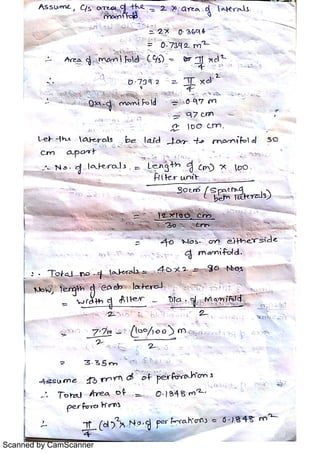 Assume, C/s area of the manifold = 2 x area of laterals
= 2x 0.3696
= 0.7392 m²
∴ Area of manifold (C/s) = π/4 xd²
∴ 0.7392 = π/4 xd²
∴ Dia. of manifold = 0.97 m
= 97 cm
≃ 100 cm.
Let the laterals be laid 1ar to manifold 30
cm apart
∴ No. of laterals = Length of filter unit (m) x 100
30cm (Spacing betn laterals)
= 12x100 cm
30 cm
= 40 Nos. on either side
of manifold.
∴ Total no. of laterals = 40x2 = 80 Nos
Now, length of each lateral
= width of filter / 2 - Dia. of Manifold / 2
= 7.7m / 2 - (100/100) m / 2
= 3.35m
Assume 13 mm d of perforations
∴ Total Area of perforations = 0.1848 m².
∴ π/4 (d)² x No. of perforations = 0.1848 m²
Scanned by CamScanner